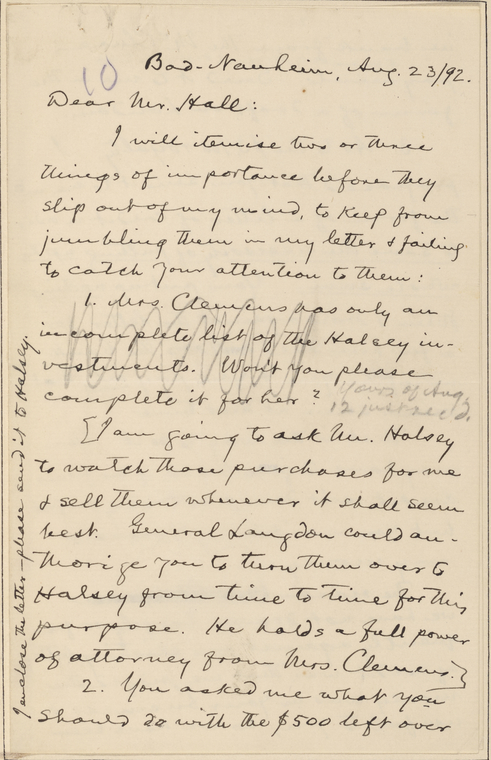 10
Bad-Nauheim, Aug. 23/92.
Dear Mr. Hall:
I will itemise two or three
things of importance before they
slip out of my mind, to keep from
jumbling them in my letter & failing
to catch your attention to them:
1. Mrs. Clemens has only an
incomplete list of the Halsey in-
vestments. Won't you please
complete it for her?
Yours of Aug.
12 just rec'd.
[I am going to ask Mr. Halsey
to watch those purchases for me
& sell them whenever it shall seem
best. General Langdon could au-
thorize you to turn them over to
Halsey from time to time for this
purpose. He holds a full power
of attorney from Mrs. Clemens.]
2. You asked me what you
should do with the $500 left over
I enclose the letter—please send it to Halsey.